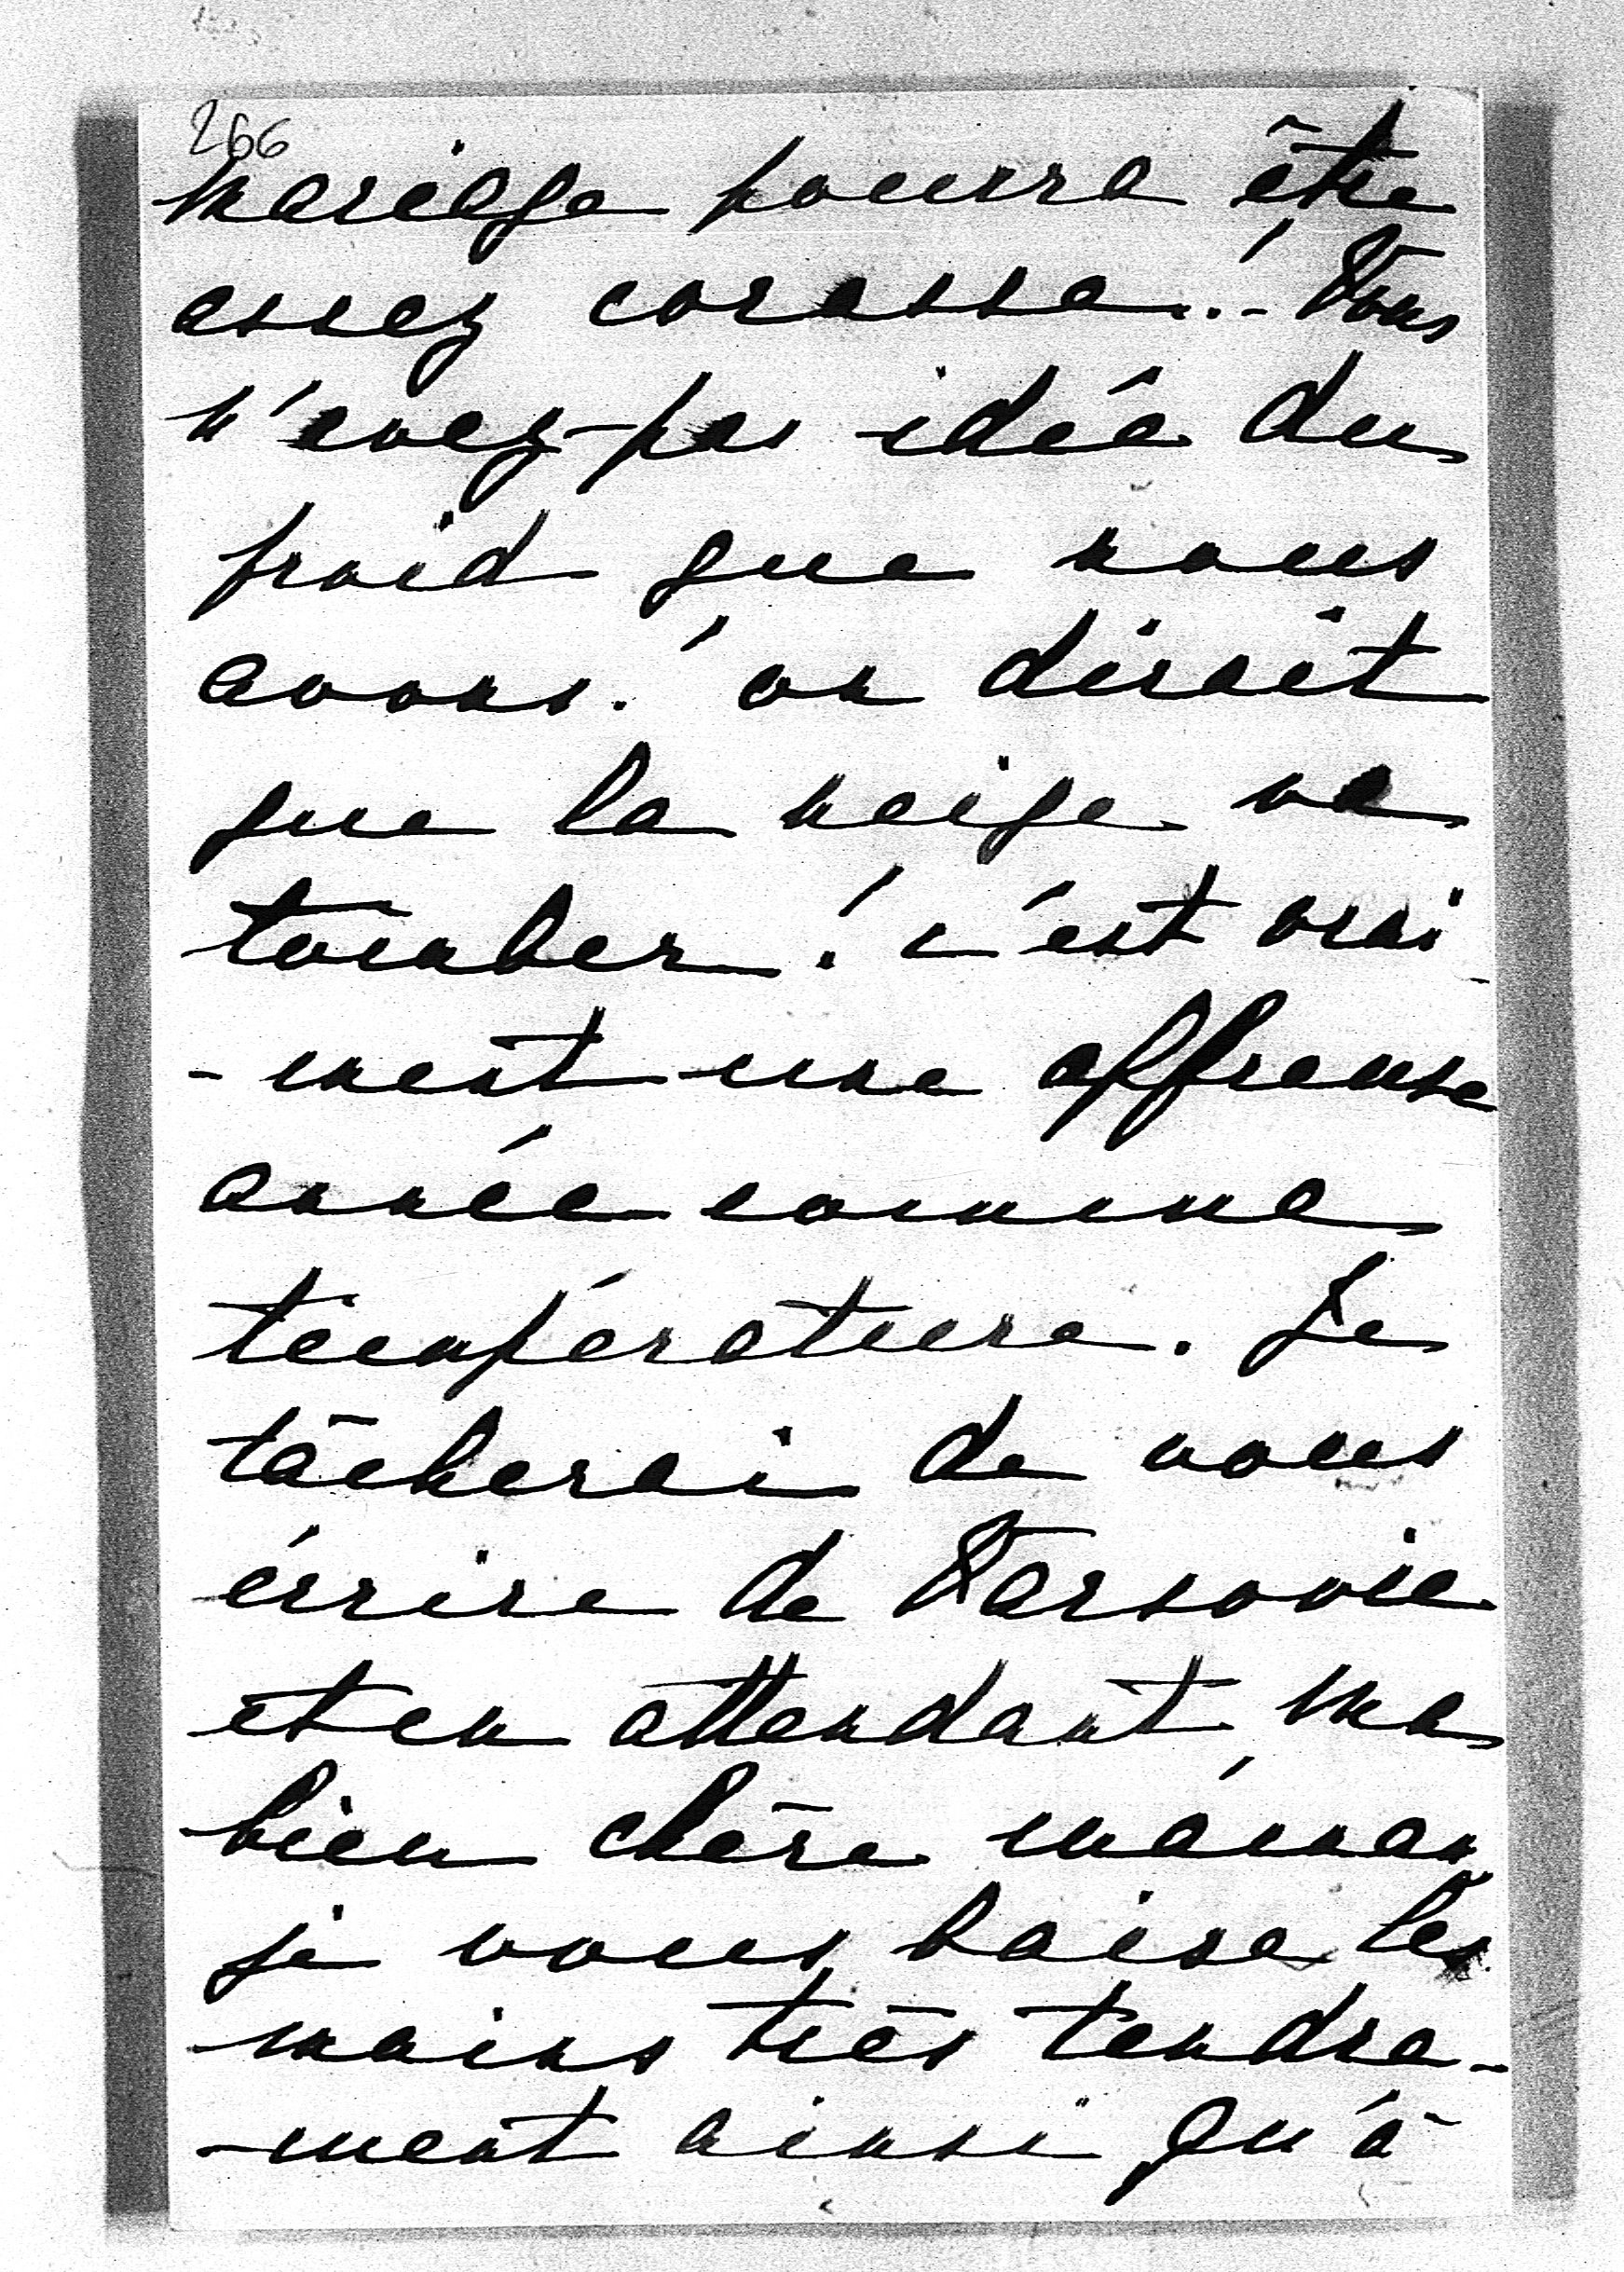 266
mariage pourra être
assez cocasse! - Vous
n'avez pas idée du
froid que nous
avons! on dirait
que la neige va
tomber! c'est vrai
- ment une affreuse
année comme
température. Je
tâcherai de vous
écrire de Varsovie
et en attendant, ma
bien chère maman,
je vous baise les
mains très tendre-
- ment ainsi qu'à